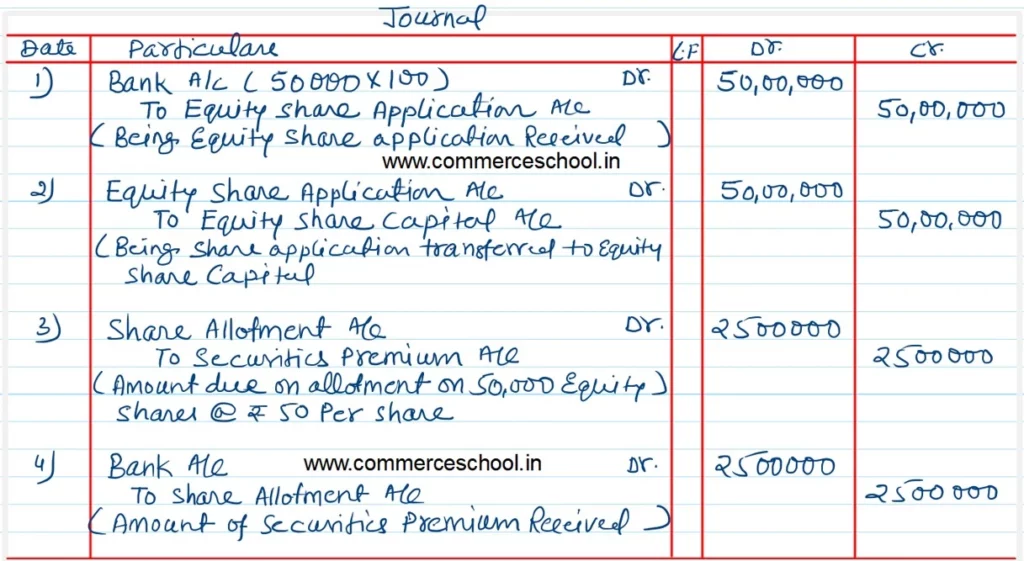 Journal
Date Particulare L.F Dr. Cr.
1) Bank A/c (50000×100) Dr. 50,00,000
To Equity Share Application A/c 50,00,000
(Being Equity Share application Received)
www.commerceschool.in
2) Equity Share Application A/c Dr. 50,00,000
To Equity Share Capital A/c 50,00,000
(Being Share application transferred to Equity
Share Capital
3) Share Allotment A/c Dr. 2500000
To Securities Premium A/c 2500000
(Amount due on allotment on 50,000 Equity)
Shares @ ₹ 50 Per share
4) Bank A/c www.commerceschool.in Dr. 2500000
To Share Allotment A/c 2500000
(Amount of Securities Premium Received)